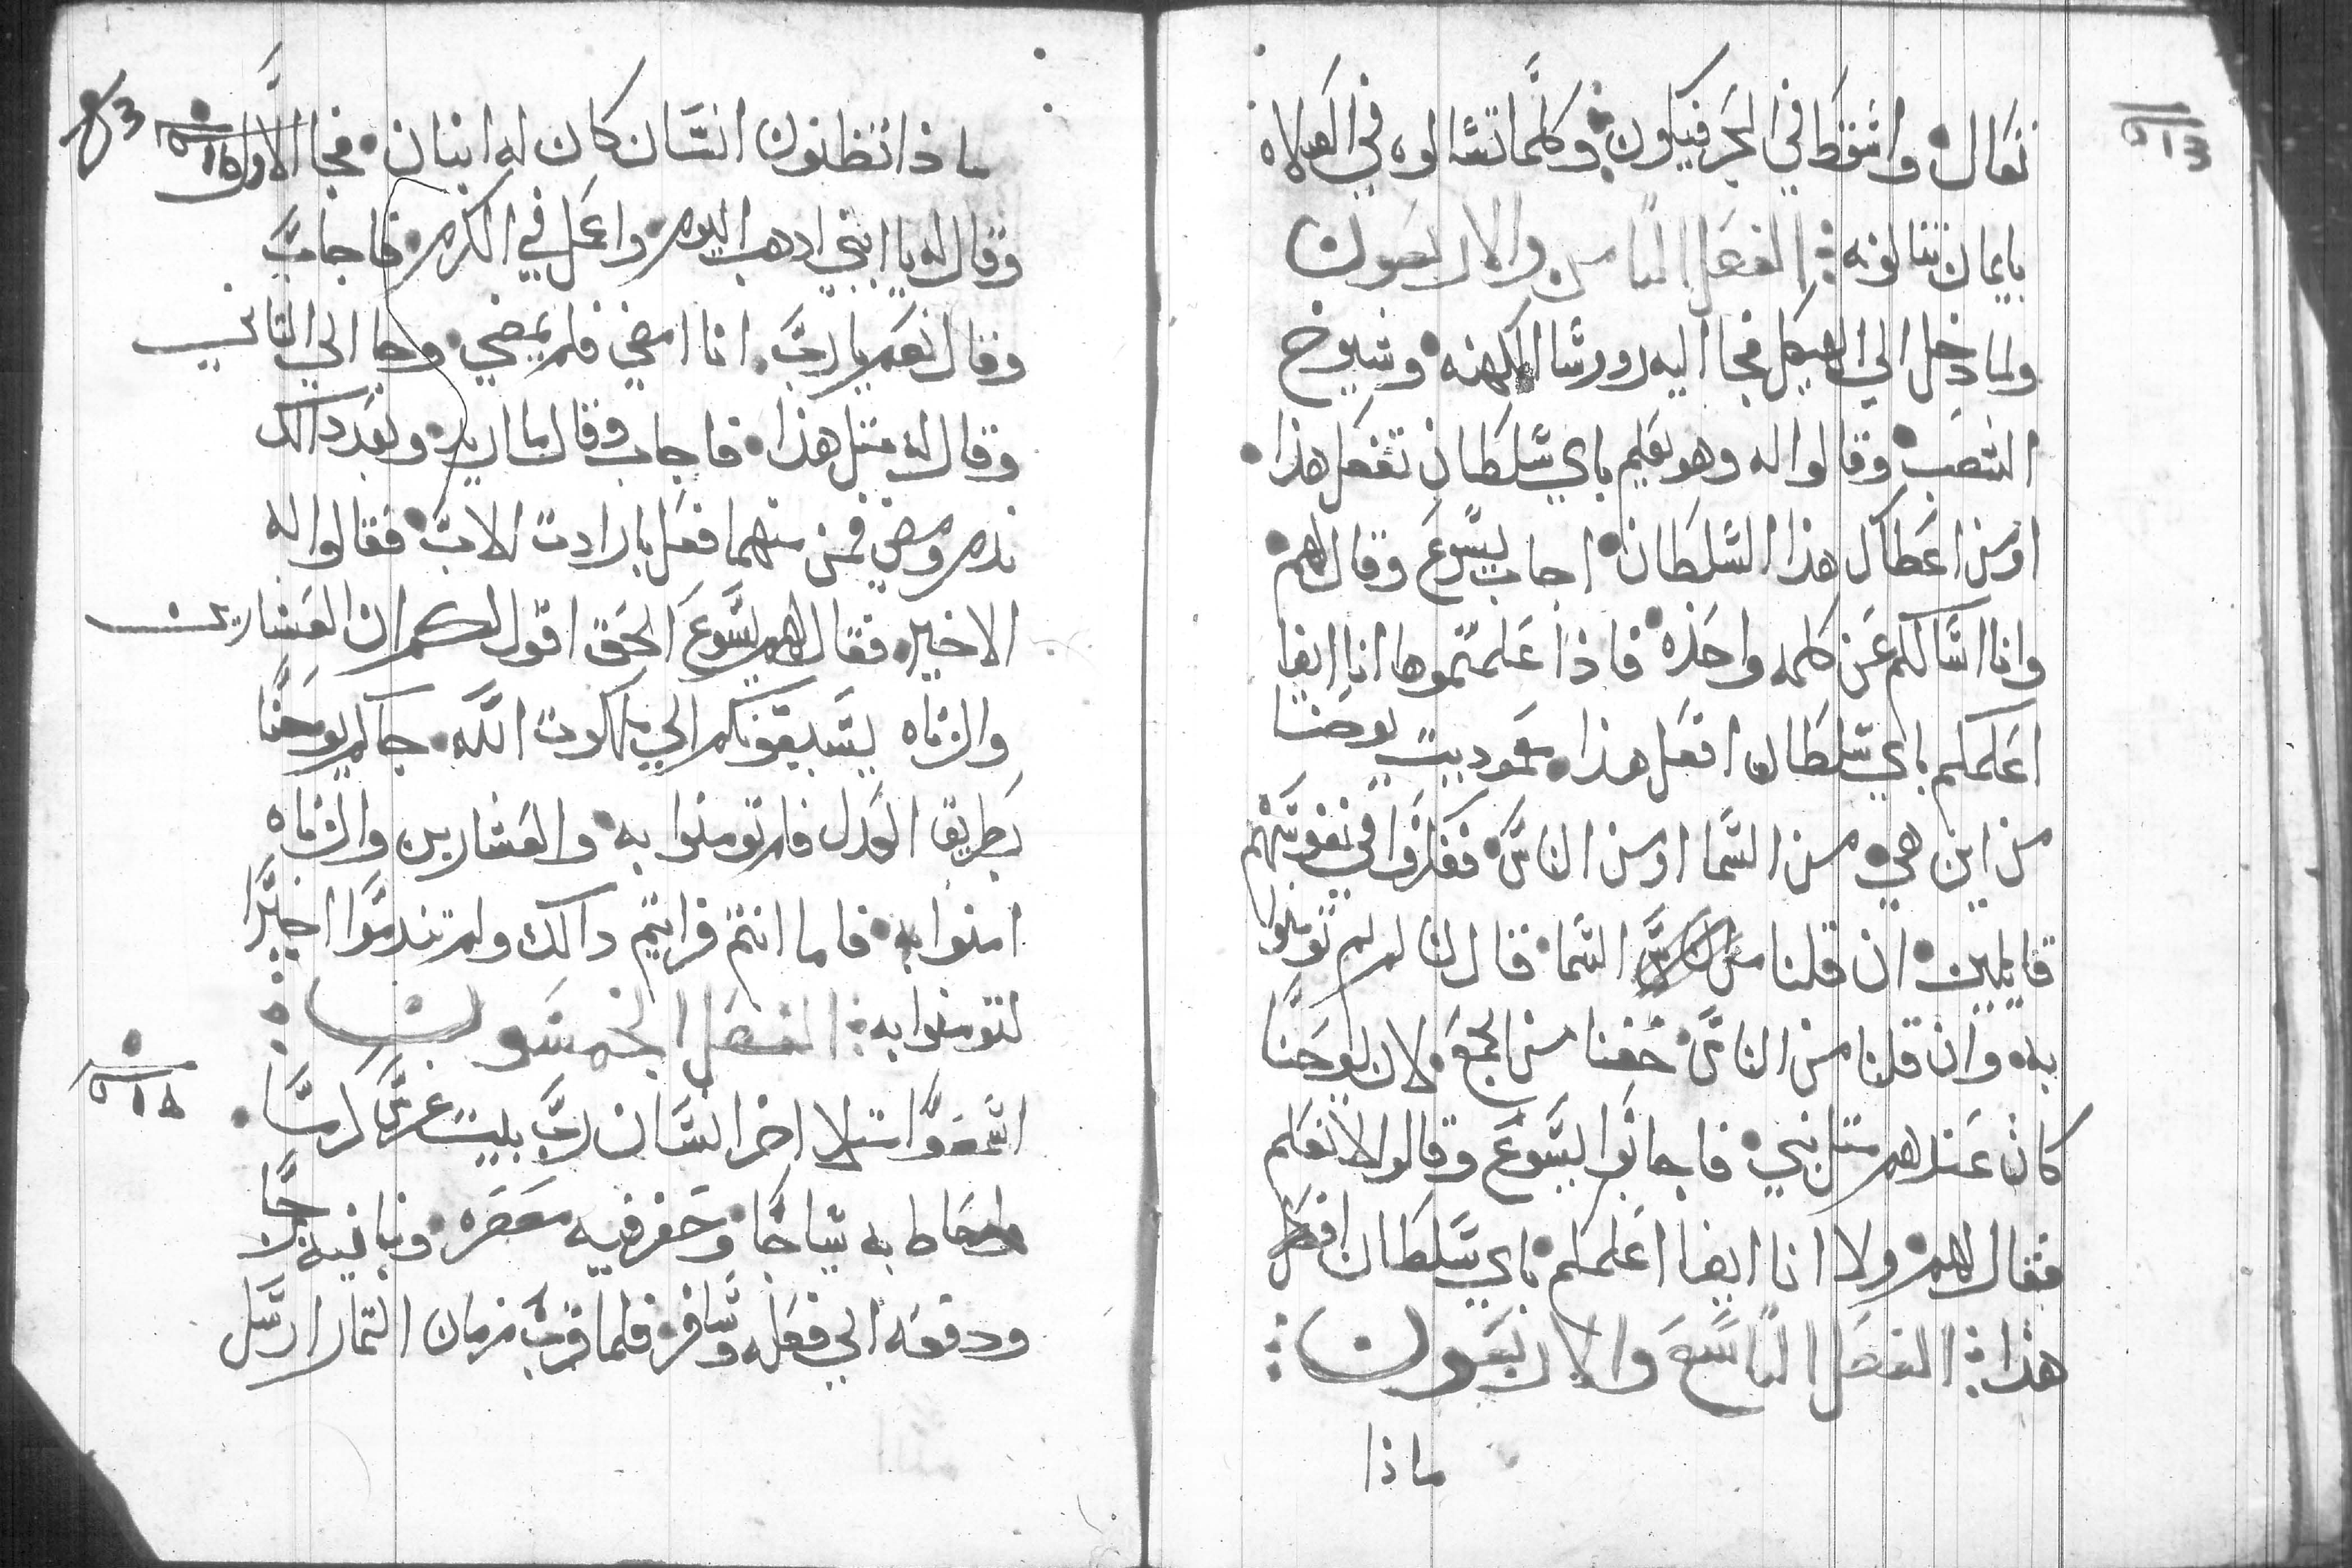 تعال واسقط في البحر فيكون وكلما تسالوه في الصلاه
بايمان تنالونه الفصل التامن والاربعون
ولما دخل الي الهيكل فجا اليه رورسا الكهنه وشيوخ
الشعب وقالوا له وهو يعلم باي سلطان تفعل هذا
اومن اعطاك هذا السلطان اجاب يسوع وقال لهم
وانا اسالكم عن كلمه واحده فاذا علمتموها انا ايضا
اعلمكم باي سلطان افعل هذا معموديت يوحنا
من اين هي من السما اومن الناس ففكروا في نفوسهم
قايلين ان قلنا من السما قال لنا لم لم تومنوا
به وان قلنا من الناس خفنا من الجمع لان يوحنا
كان عندهم متل نبي فاجابوا ليسوع وقالوا لا نعلم
فقال لهم ولا انا ايضا اعلمكم باي سلطان افعل
هذا الفصل التاسع والاربعون
ماذا
ماذا تظنون انسان كان له ابنان فجا الاول
وقال له يا ابني ادهب اليوم واعمل في الكرم فاجاب
وقال نعم يا رب انا امضي فلم يمضي وجا الي التاني
وقال له متل هذا فاجاب وقال ما اريد وبعد دالك
ندم ومضي فمن منهما فعل بارادت الاب فقالوا له
الاخير فقال لهم يسوع الحق اقول لكم ان العشارين
والزناه يسبقونكم الي ملكوت الله جاكم يوحنا
بطريق العدل فلم تومنوا به والعشارين والزناه
امنوا به فاما انتم فرايتم دالك ولم تندموا اخيرا
لتومنوا به الفصل الخمسون
اسمعوا متلا اخر انسان رب بيت غرس كرما
واحاط به سياجا وحفر فيه معصره وبنا فيه برجا
ودفعه الي فعله وسافر فلما قرب زمان التمار ارسل